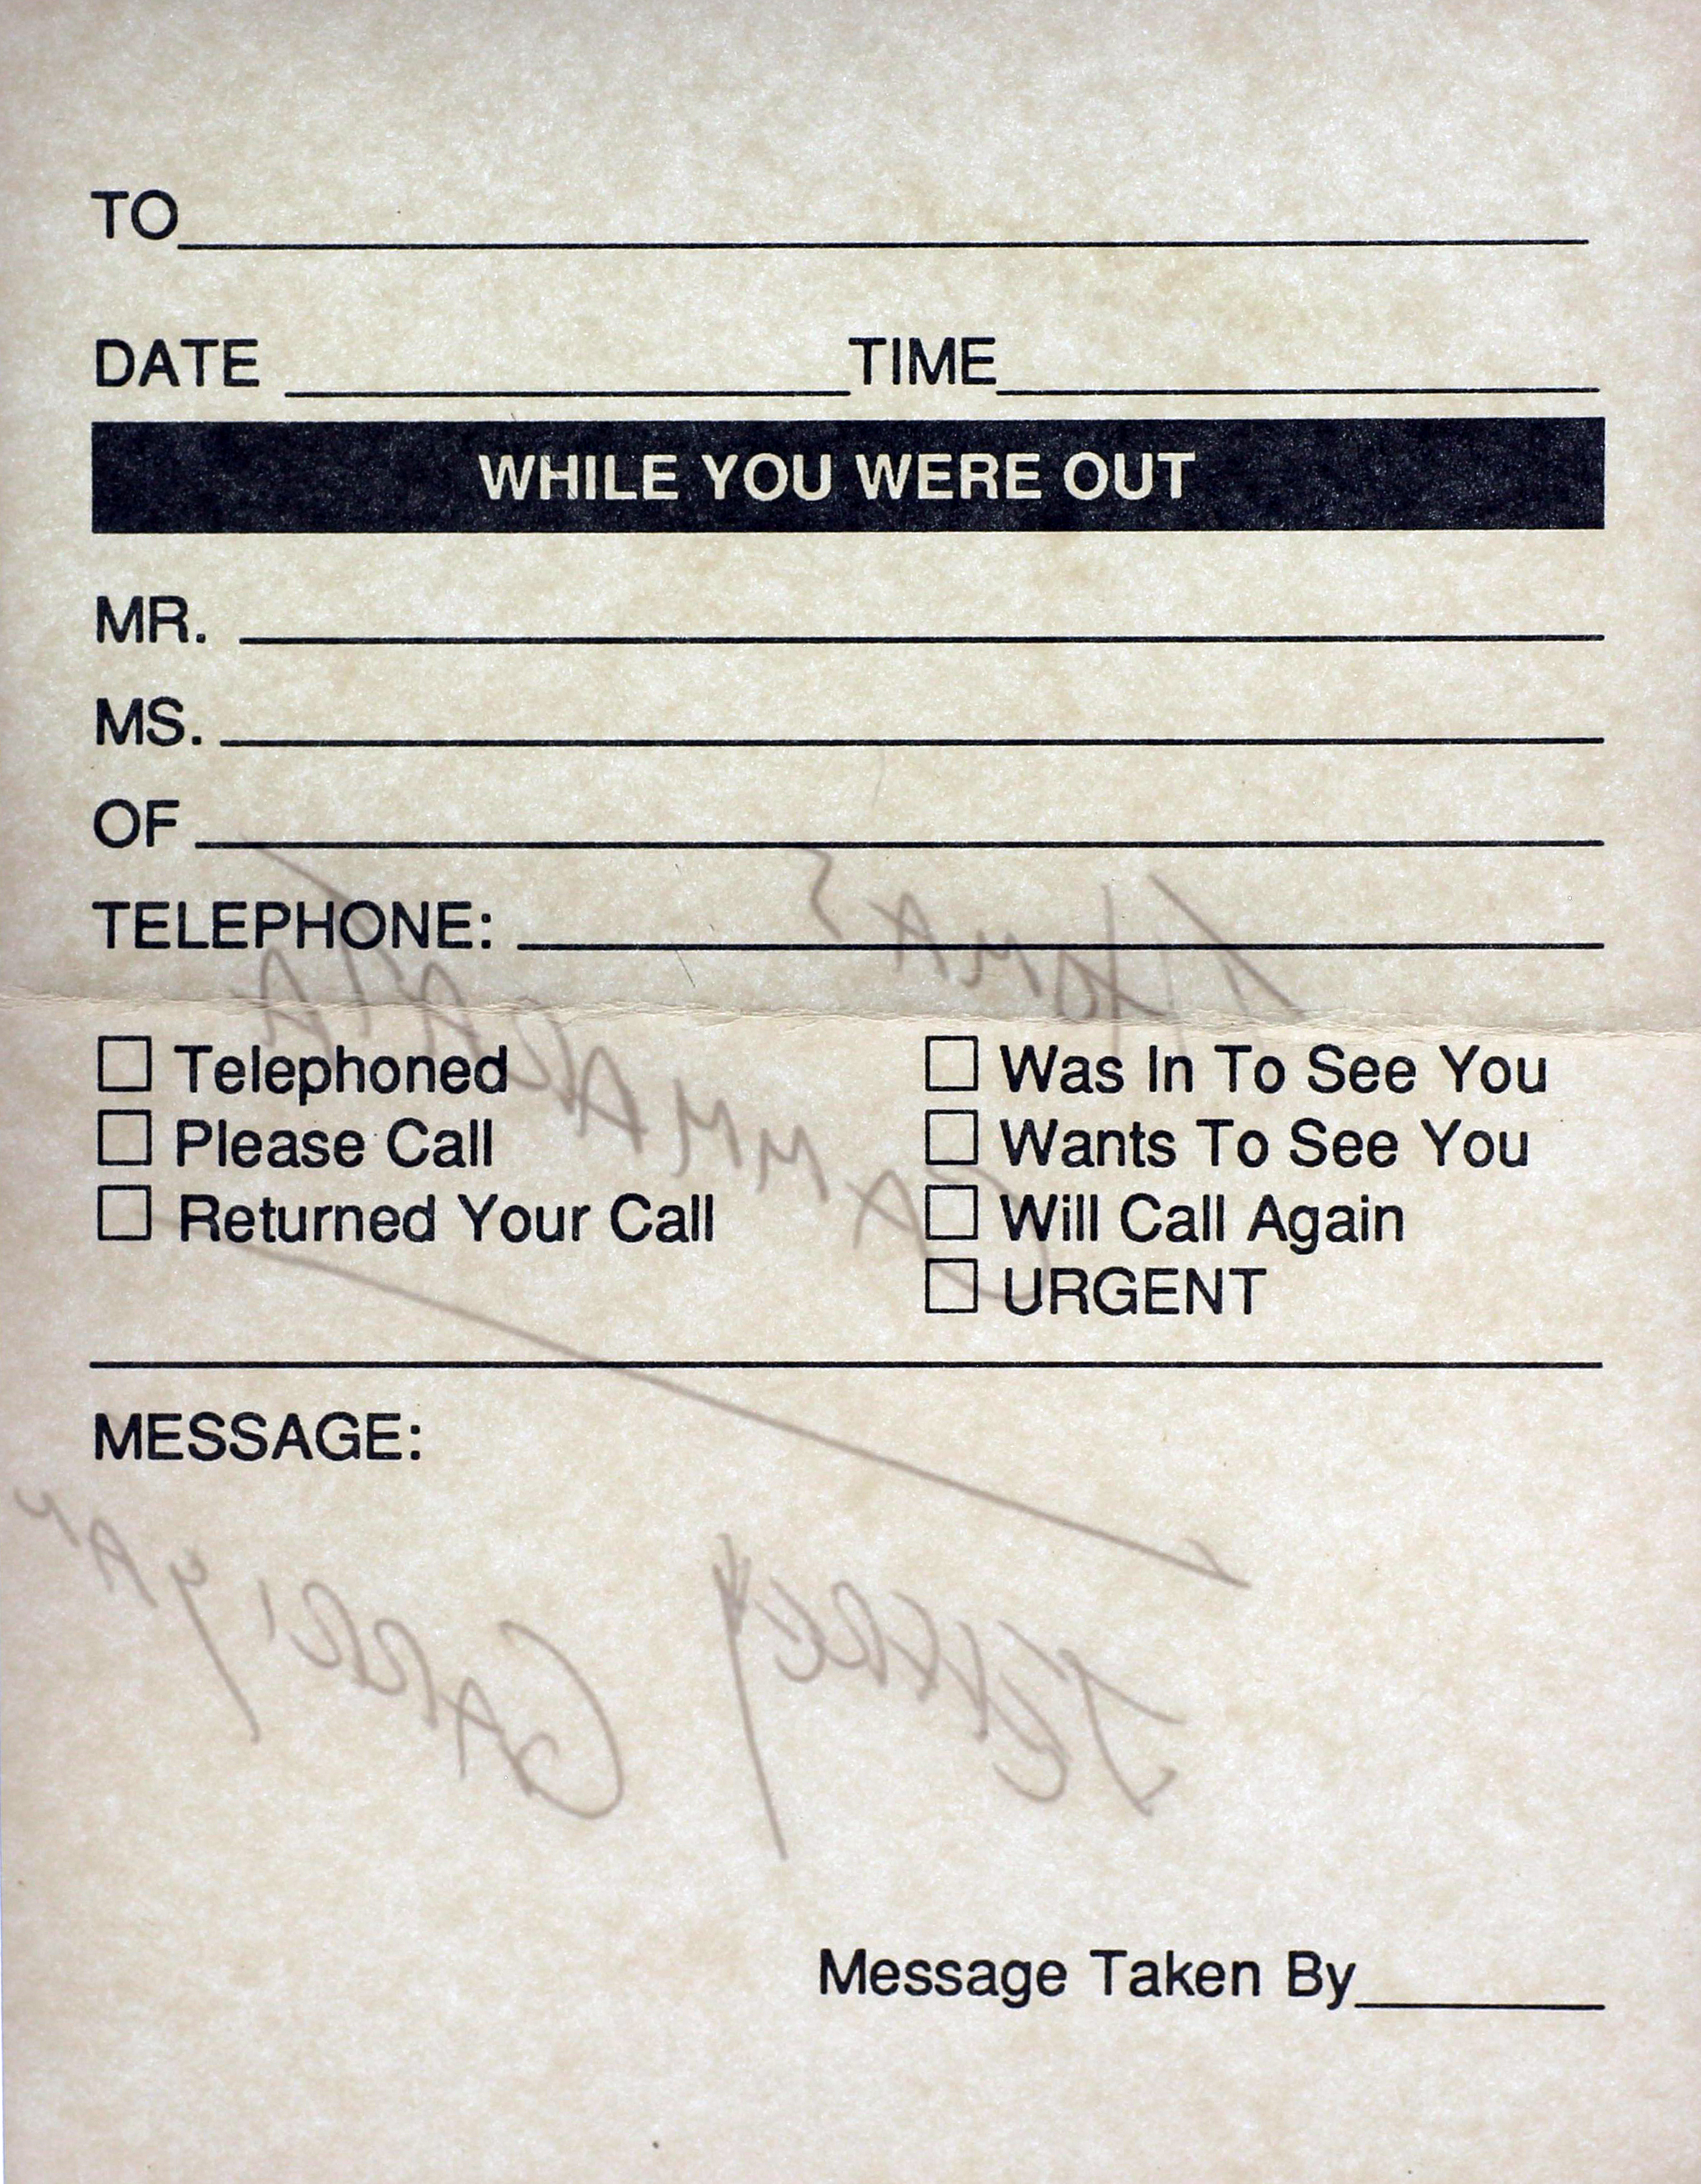 TO
DATE TIME
WHILE YOU WERE OUT
MR.
MS.
OF
TELEPHONE:
THOMAS
CAMMARATA
☐ Telephoned ☐ Was In To See You
☐ Please Call ☐ Wants To See You
☐ Returned Your Call ☐ Will Call Again
☐ URGENT
MESSAGE:
JEFFREY GARRIGAN
Message Taken By